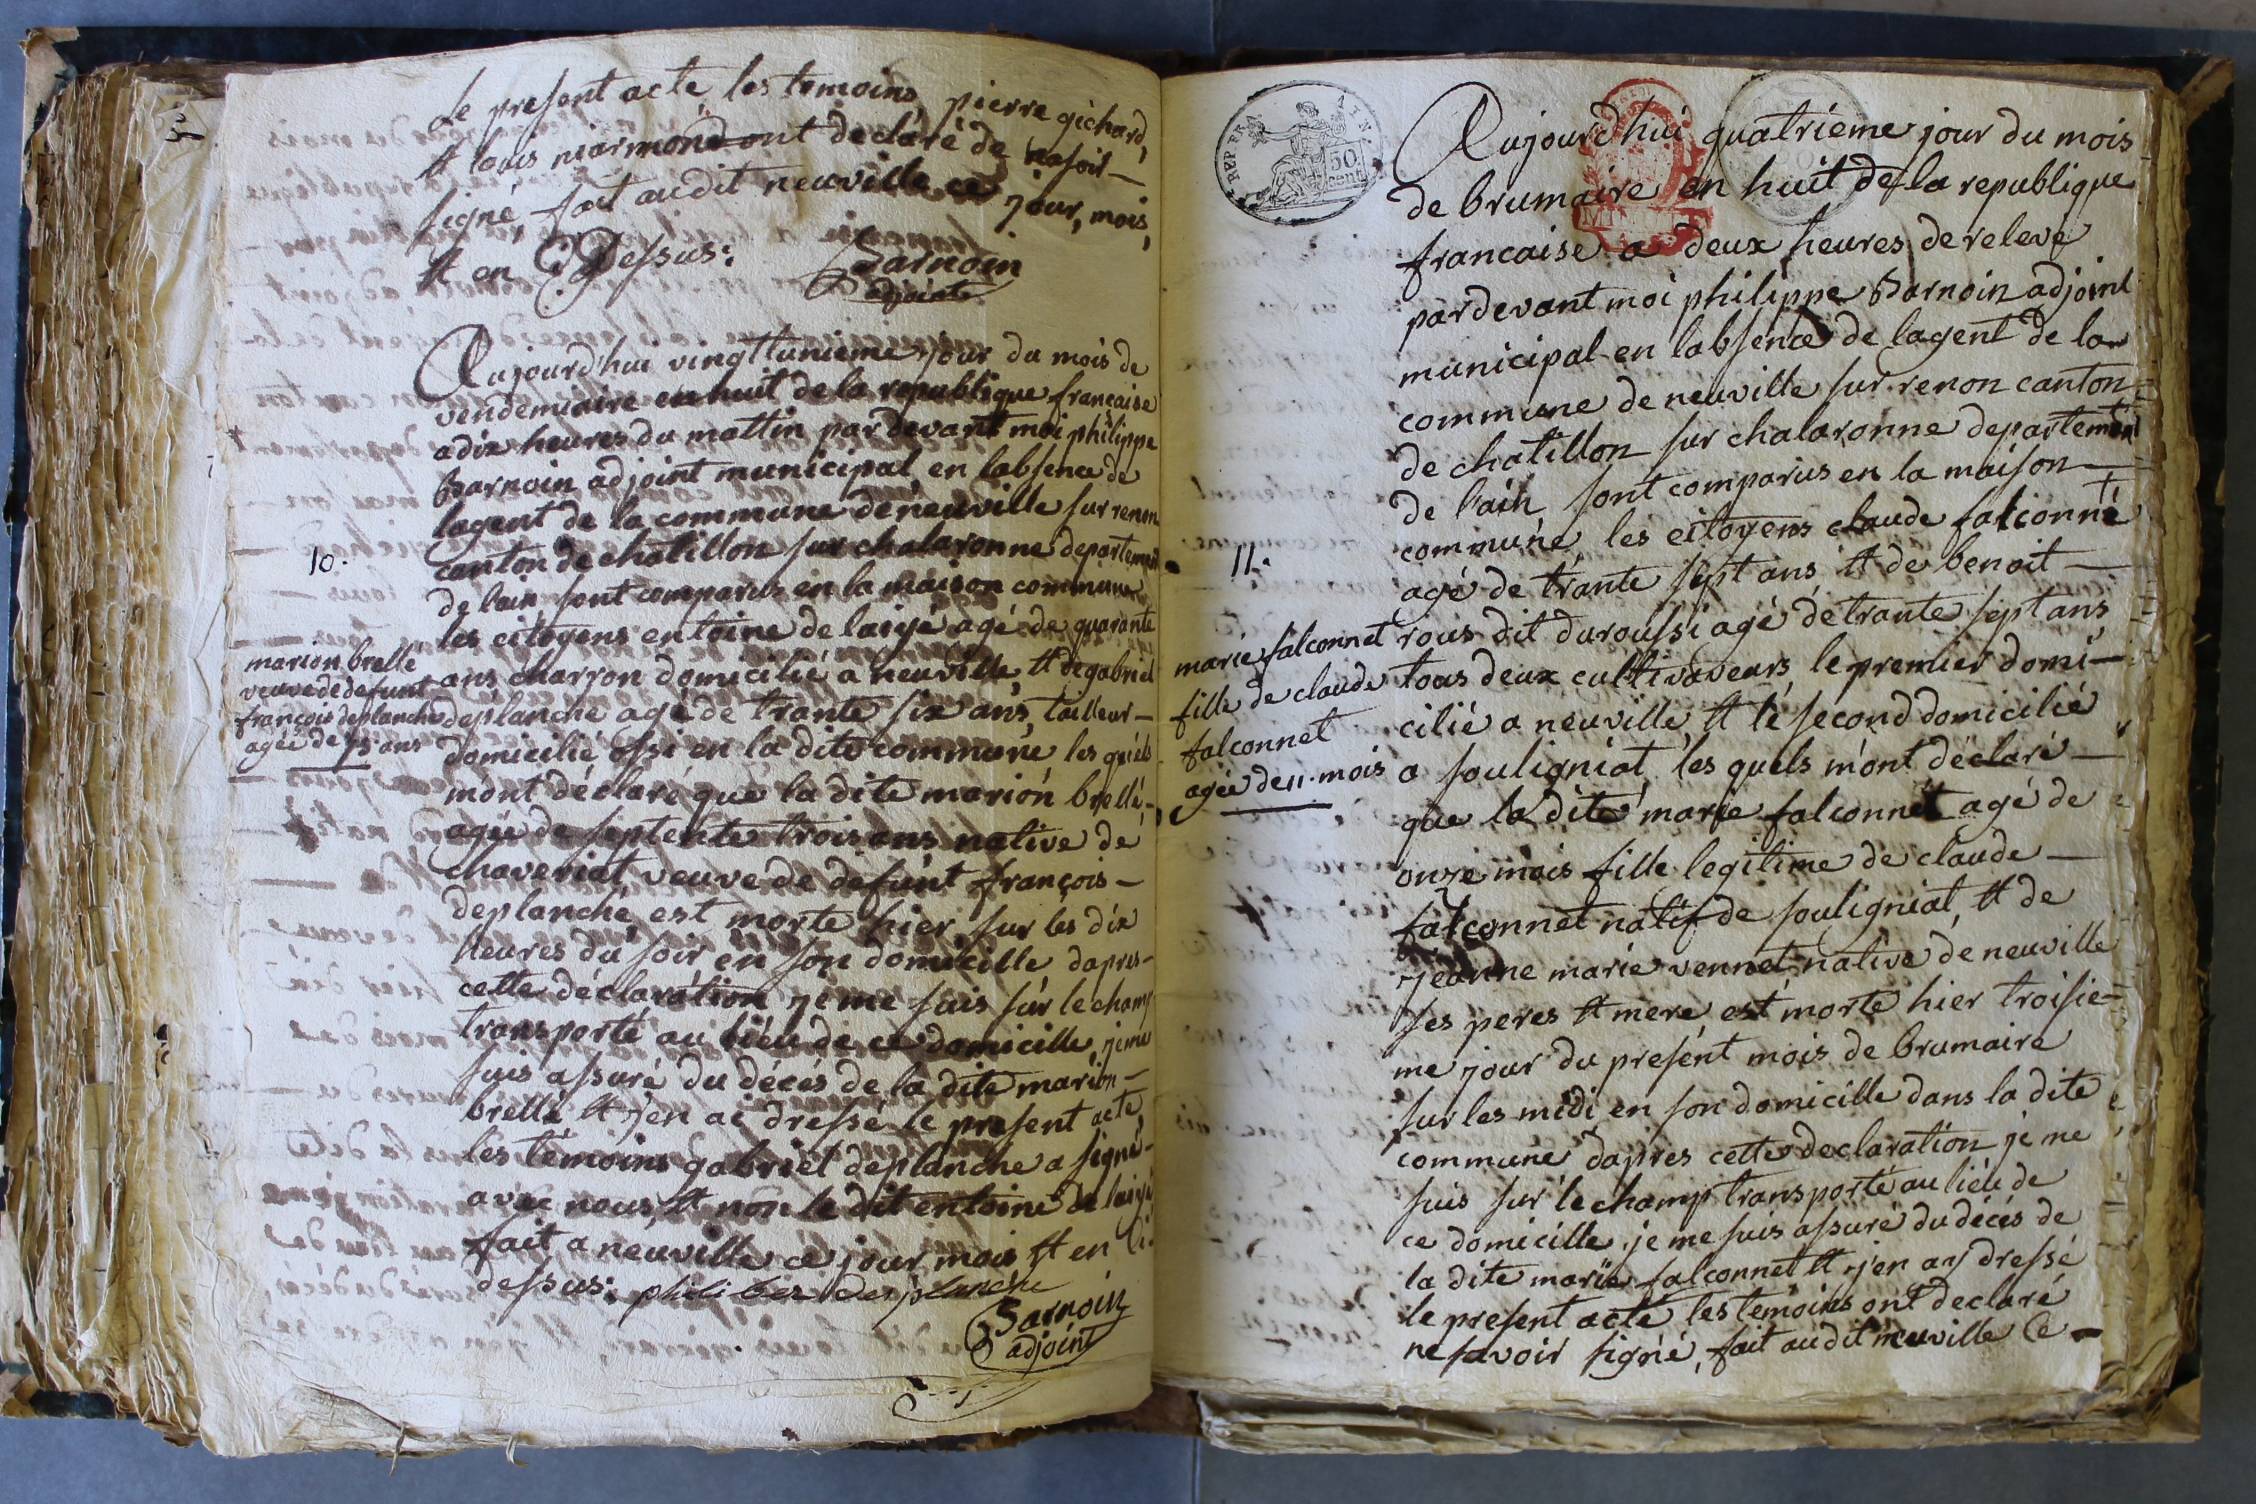 Le present acte, les temoins, pierre gichard,
et louis niarmond ont declaré de nasoir
signé, fait audit neuville ce jour, mois,
et en Dessus:
Barnoin
adjoint
Aujourdhui vingttunieme jour du mois de
vendemiaire en huit de la republique francaise
a dix heures du mattin par devant moi philippe
Barnoin adjoint municipal en labsence de
lagent de la commune de neuville sur renon
canton de chatillon sur chalaronne departement
de lain sont comparus en la maison commune
les citoyens entoine de laiyé agé de quarante
ans charron domicilié a neuville, et de gabriel
deplanche agé de trante six ans, tailleur
domicilié ossi en la dite commune les quels
mont déclaré que la dite marion brellé
agée de septente trois ans native de
chaveriat veuve de defunt françois
deplanche est morte hier sur les dix
heures du soir en son domicille dapres
cette déclaration je me suis sur le champ
transporté au lieu de ce domicille, je me
suis assuré du décés de la dite marion
brellé et j'en ai dressé le present acte
les témoins gabriel deplanche a signé
avec nous, et non le dit entoine de laiyé
fait a neuville ce jour, mois et en Ci
dessus: philiber deplanche
Barnoin
adjoint
10.
marion brellé
veuve de defunt
françois deplanche
agée de 73 ans
REP FRA
50
cent
Aujourdhui quatrieme jour du mois
de brumaire en huit de la republique
francaise a deux heures de relevé
pardevant moi philippe Barnoin adjoint
municipal en labsence de lagent de la
commune de neuville sur renon canton
de chatillon sur chalaronne departement
de l'ain sont comparus en la maison
commune les citoyens claude falconné
agé de trante sept ans et de benoit
rous dit duroussi agé de trante sept ans
tous deux cultivaveurs le premier domi-
cilié a neuville, et le second domicilié
a souligniat les quels mont déclaré
que la dite marie falconnet agé de
onze mois fille legitime de claude
falconnet natif de souligniat, et de
jeanne marie vennet native de neuville
ses peres et mere est morte hier troisie-
me jour du present mois de brumaire
sur les midi en son domicille dans la dite
commune dapres cette declaration je ne
suis sur le champ transporté au liéu de
ce domicille, je me suis assuré du décés de
la dite marie falconnet et j'en ay dressé
le present acte les temoins ont declaré
ne savoir signé, fait audit neuville Ce
11.
marie falconnet
fille de claude
falconnet
agée de 11 mois